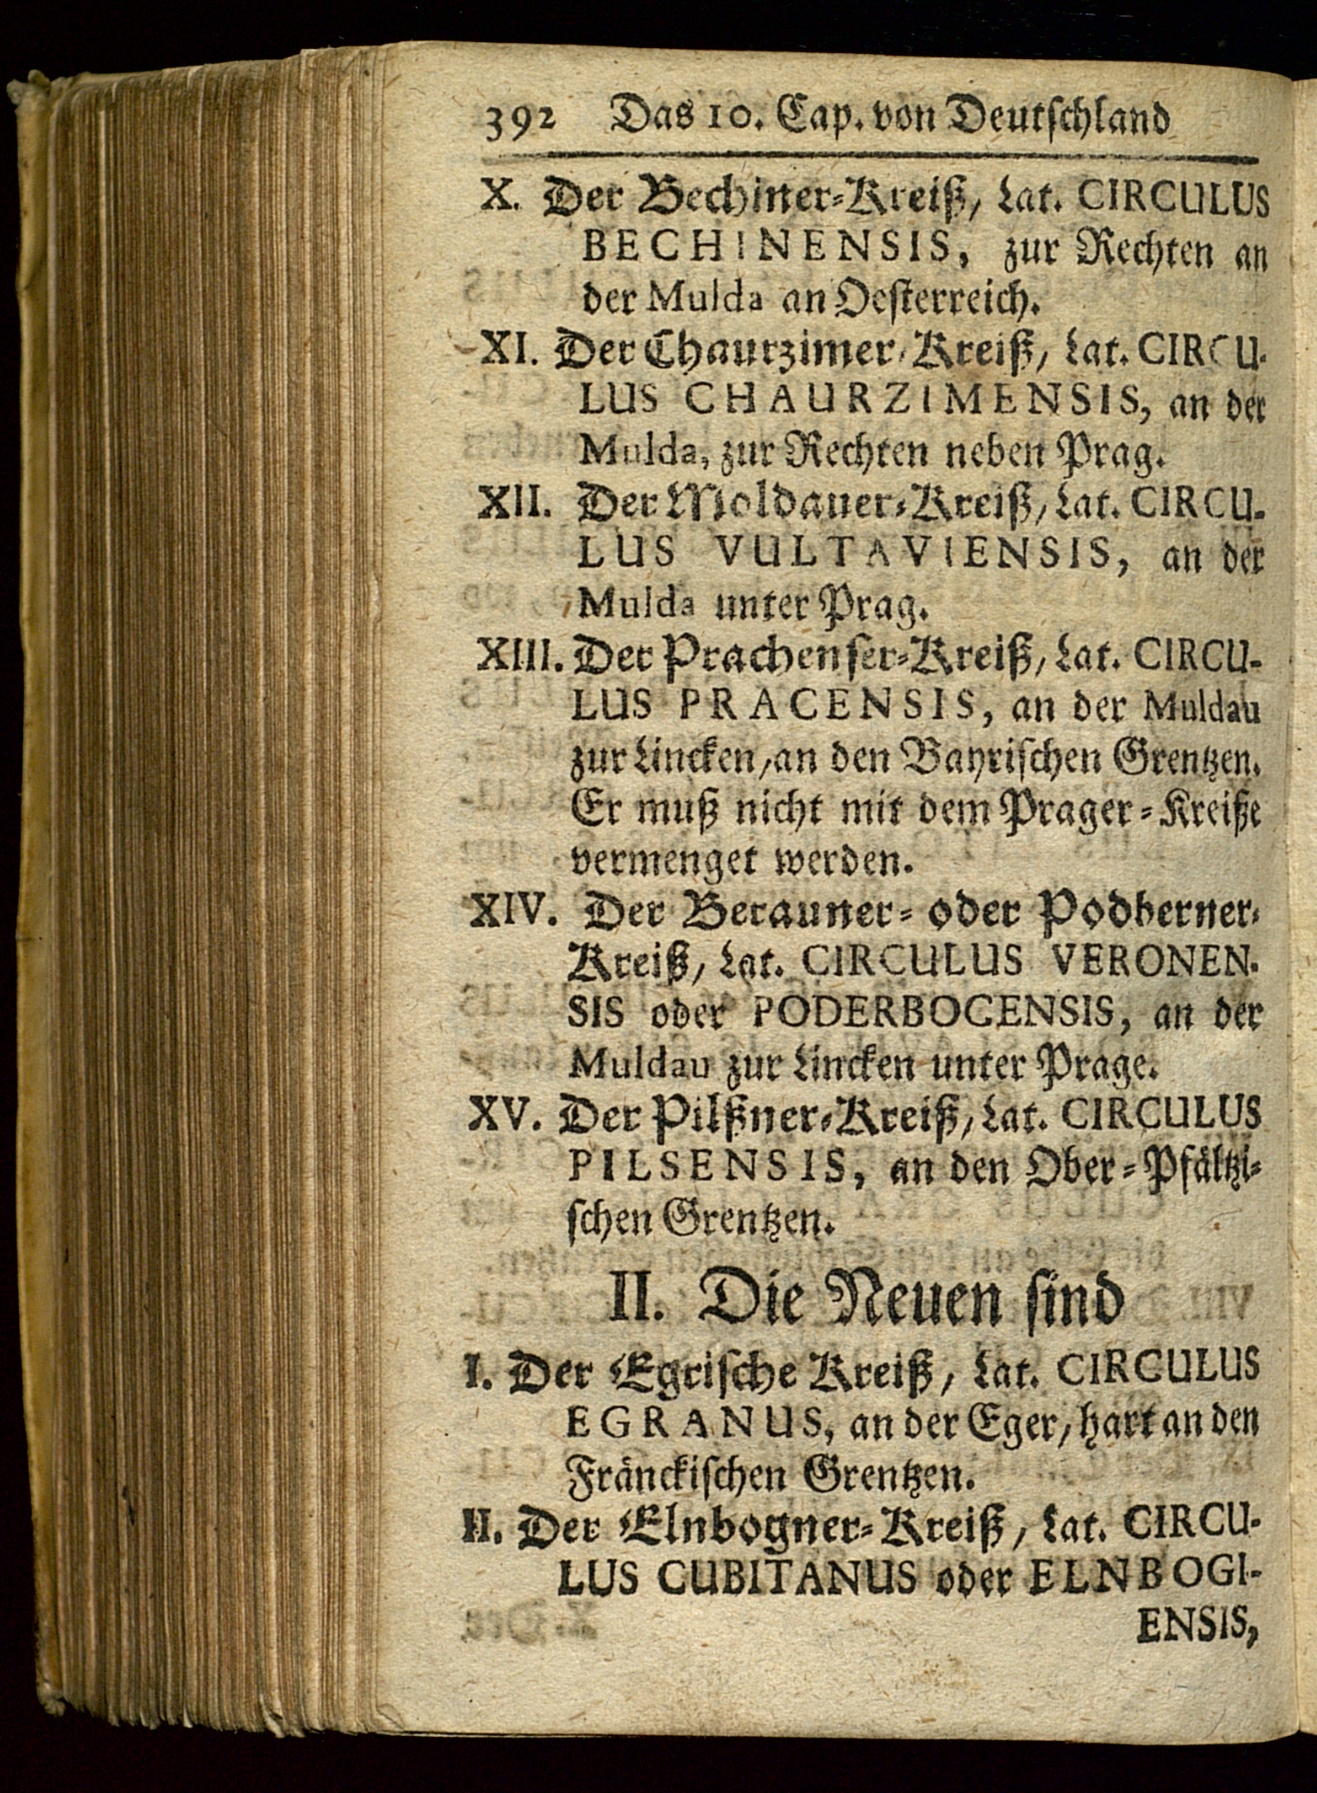 392 Das 10. Cap. von Deutschland
X. Der Bechiner-Kreiß, Lat. CIRCULUS
BECHINENSIS, zur Rechten an
der Mulda an Oesterreich.
XI. Der Chaurzimer-Kreiß, Lat. CIRCU-
LUS CHAURZIMENSIS, an der
Mulda, zur Rechten neben Prag.
XII. Der Moldauer-Kreiß, Lat. CIRCU-
LUS VULTAVIENSIS, an der
Mulda unter Prag.
XIII. Der Prachenser-Kreiß, Lat. CIRCU-
LUS PRACENSIS, an der Muldau
zur Lincken, an den Bayrischen Grentzen.
Er muß nicht mit dem Prager-Kreiße
vermenget werden.
XIV. Der Berauner- oder Podberner-
Kreiß, Lat. CIRCULUS VERONEN-
SIS oder PODERBOCENSIS, an der
Muldau zur Lincken unter Prage.
XV. Der Pilßner-Kreiß, Lat. CIRCULUS
PILSENSIS, an den Ober-Pfältzi-
schen Grentzen.
II. Die Neuen sind
I. Der Egrische Kreiß, Lat. CIRCULUS
EGRANUS, an der Eger, hart an den
Fränckischen Grentzen.
II. Der Elnbogner-Kreiß, Lat. CIRCU-
LUS CUBITANUS oder ELNBOGI-
ENSIS,